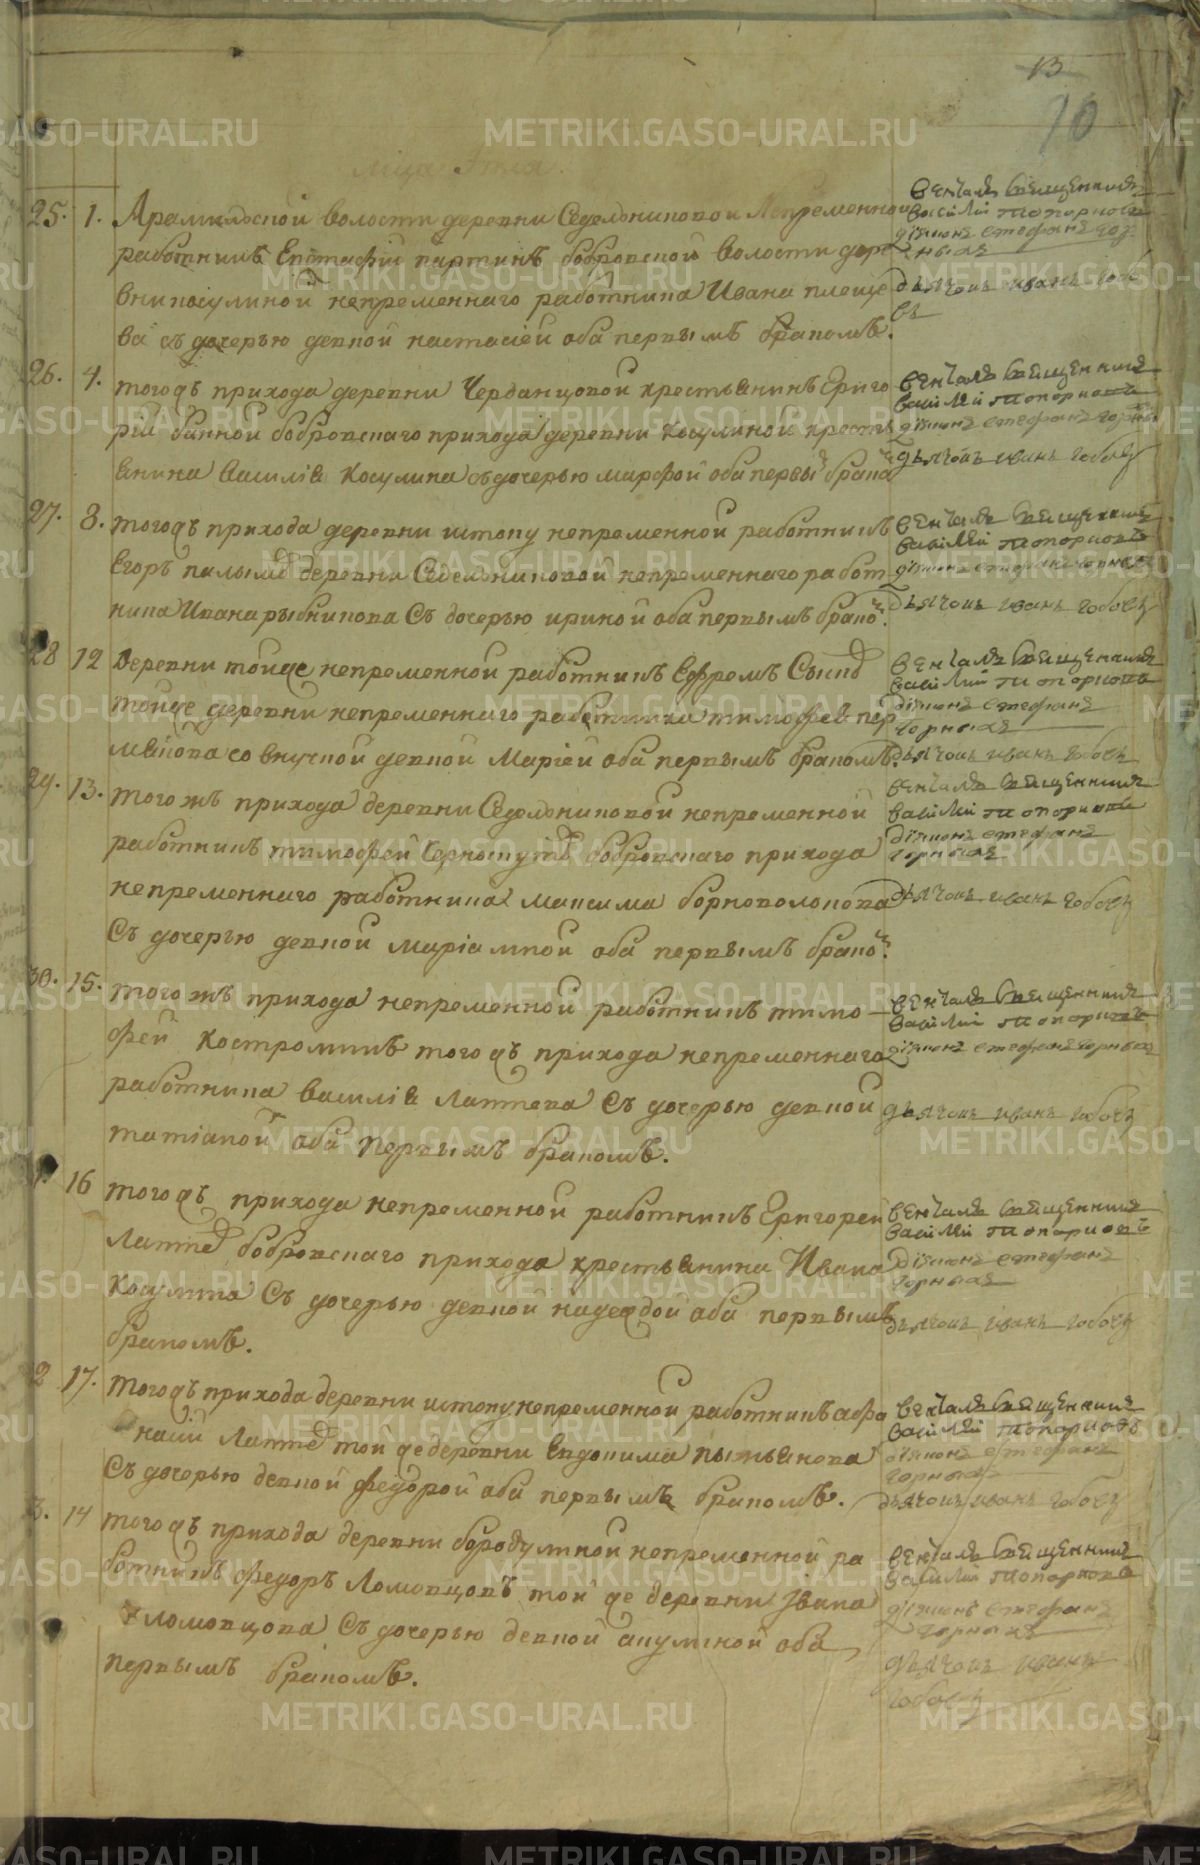 13
10
25. 1. Арамильской волости деревни Седельниковой Непременной
работникъ Евстафий партинъ бобровской волости дере
вни косулиной непременнаго работника Ивана плеще
ва съ дочерью девкой настасией оба первымъ бракомъ.
венчалъ священникъ
василий топорковъ
діяконъ стефанъ гор
ныхъ
дьячокъ иванъ
26. 4. тогожъ прихода деревни Черданцовой крестьянинъ Григо
рий банной бобровскаго прихода деревни косулиной крестья
янина василія косулина съ дочерью марфой оба первы бракō
венчалъ священникъ
василий топорковъ
діяконъ стефанъ горных
дьячокъ иванъ
27. 8. тогожъ прихода деревни истоку непременной работникъ
Егоръ палымо деревни Седельниковой непременнаго работ
ника Ивана рыбникова съ дочерью ириной оба первымъ брако
венчалъ священникъ
василий топорковъ
діяконъ стефанъ горных
дьячокъ иванъ
28 12 деревни тойже непременной работникъ Ефремъ
тойже деревни непременнаго работника тимофея пер
мякова со внучкой девкой Марией оба первымъ бракомъ.
венчалъ священникъ
василий топорковъ
діяконъ стефанъ
горныхъ
дьячокъ иванъ
29. 13. того жъ прихода деревни Седельниковой непременной
работникъ тимофей бобровскаго прихода
непременнаго работника максима борноволокова
съ дочерью девкой маріамной оба первымъ брако.
венчалъ священникъ
василий топорковъ
діяконъ стефанъ
горныхъ
дьячокъ иванъ
30. 15. того жъ прихода непременной работникъ тимо
фей костроминъ тогожъ прихода непременнаго
работника василія лаптева съ дочерью девкой
татіаной оба первымъ бракомъ.
венчалъ священникъ
василий топорковъ
діяконъ стефанъ горных
дьячокъ иванъ
16 тогожъ прихода непременной работникъ Григорей
лапте бобровскаго прихода крестьянина Ивана
косулина съ дочерью девкой надеждой оба первымъ
бракомъ.
венчалъ священникъ
василий топорковъ
діяконъ стефанъ
горныхъ
дьячокъ иванъ
2 17. тогожъ прихода деревни истоку непременной работникъ афа
насий лапте той же деревни Евдокима пьянкова
съ дочерью девкой федорой оба первымъ бракомъ.
венчалъ священникъ
василий топорковъ
діяконъ стефанъ
горныхъ
дьячокъ иванъ
3. 14 тогожъ прихода деревни бородулиной непременной ра
ботникъ федоръ Ломовцовъ той же деревни Ивана
ломовцова съ дочерью девкой акулиной оба
первымъ бракомъ.
венчалъ священникъ
василий топорковъ
діяконъ стефанъ
горныхъ
дьячокъ иванъ
METRIKI.GASO-URAL.RU